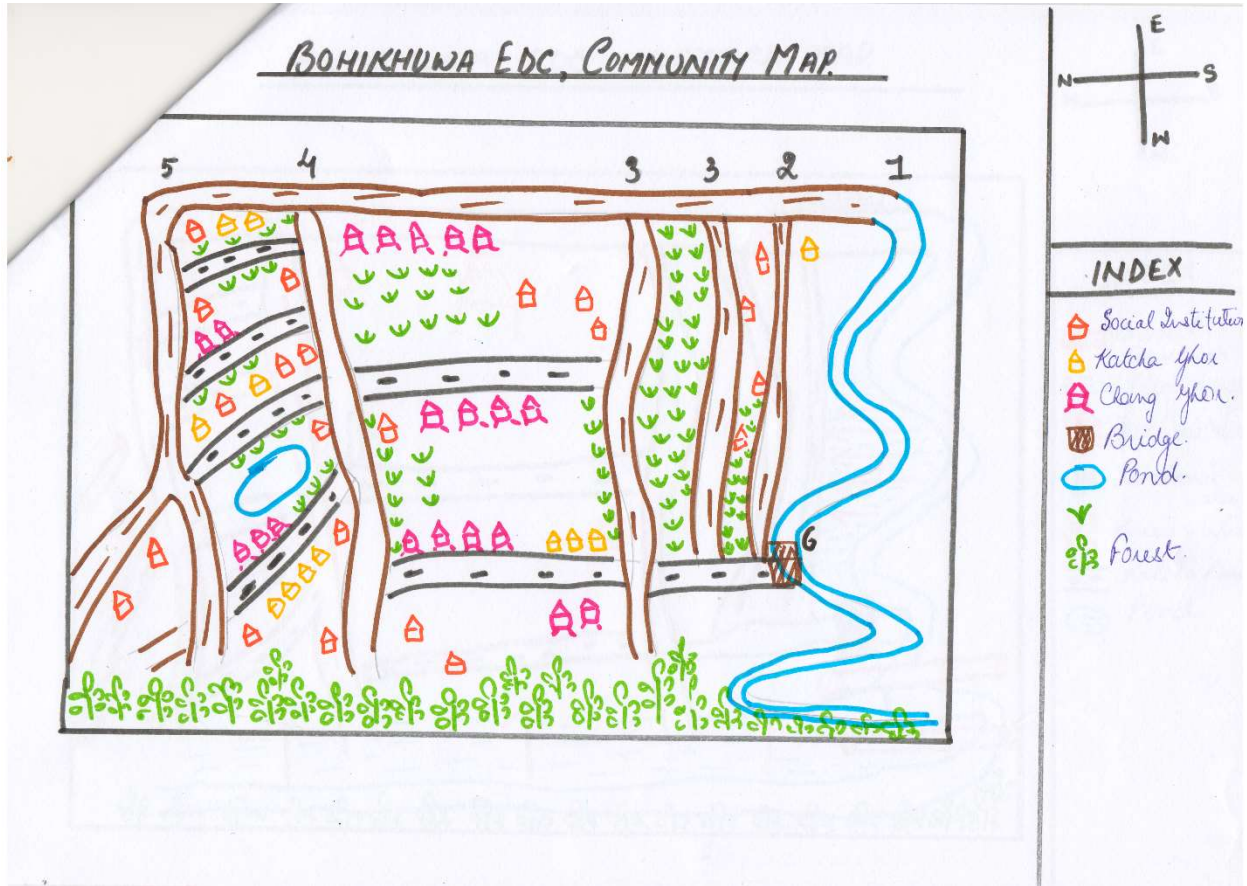 BOHIKHUWA EDC, COMMUNITY MAP.
E
N S
W
5 4 3 3 2 1
6
INDEX
Social Institution
Katcha Ghor
Chang Ghor.
Bridge.
Pond.
Forest.